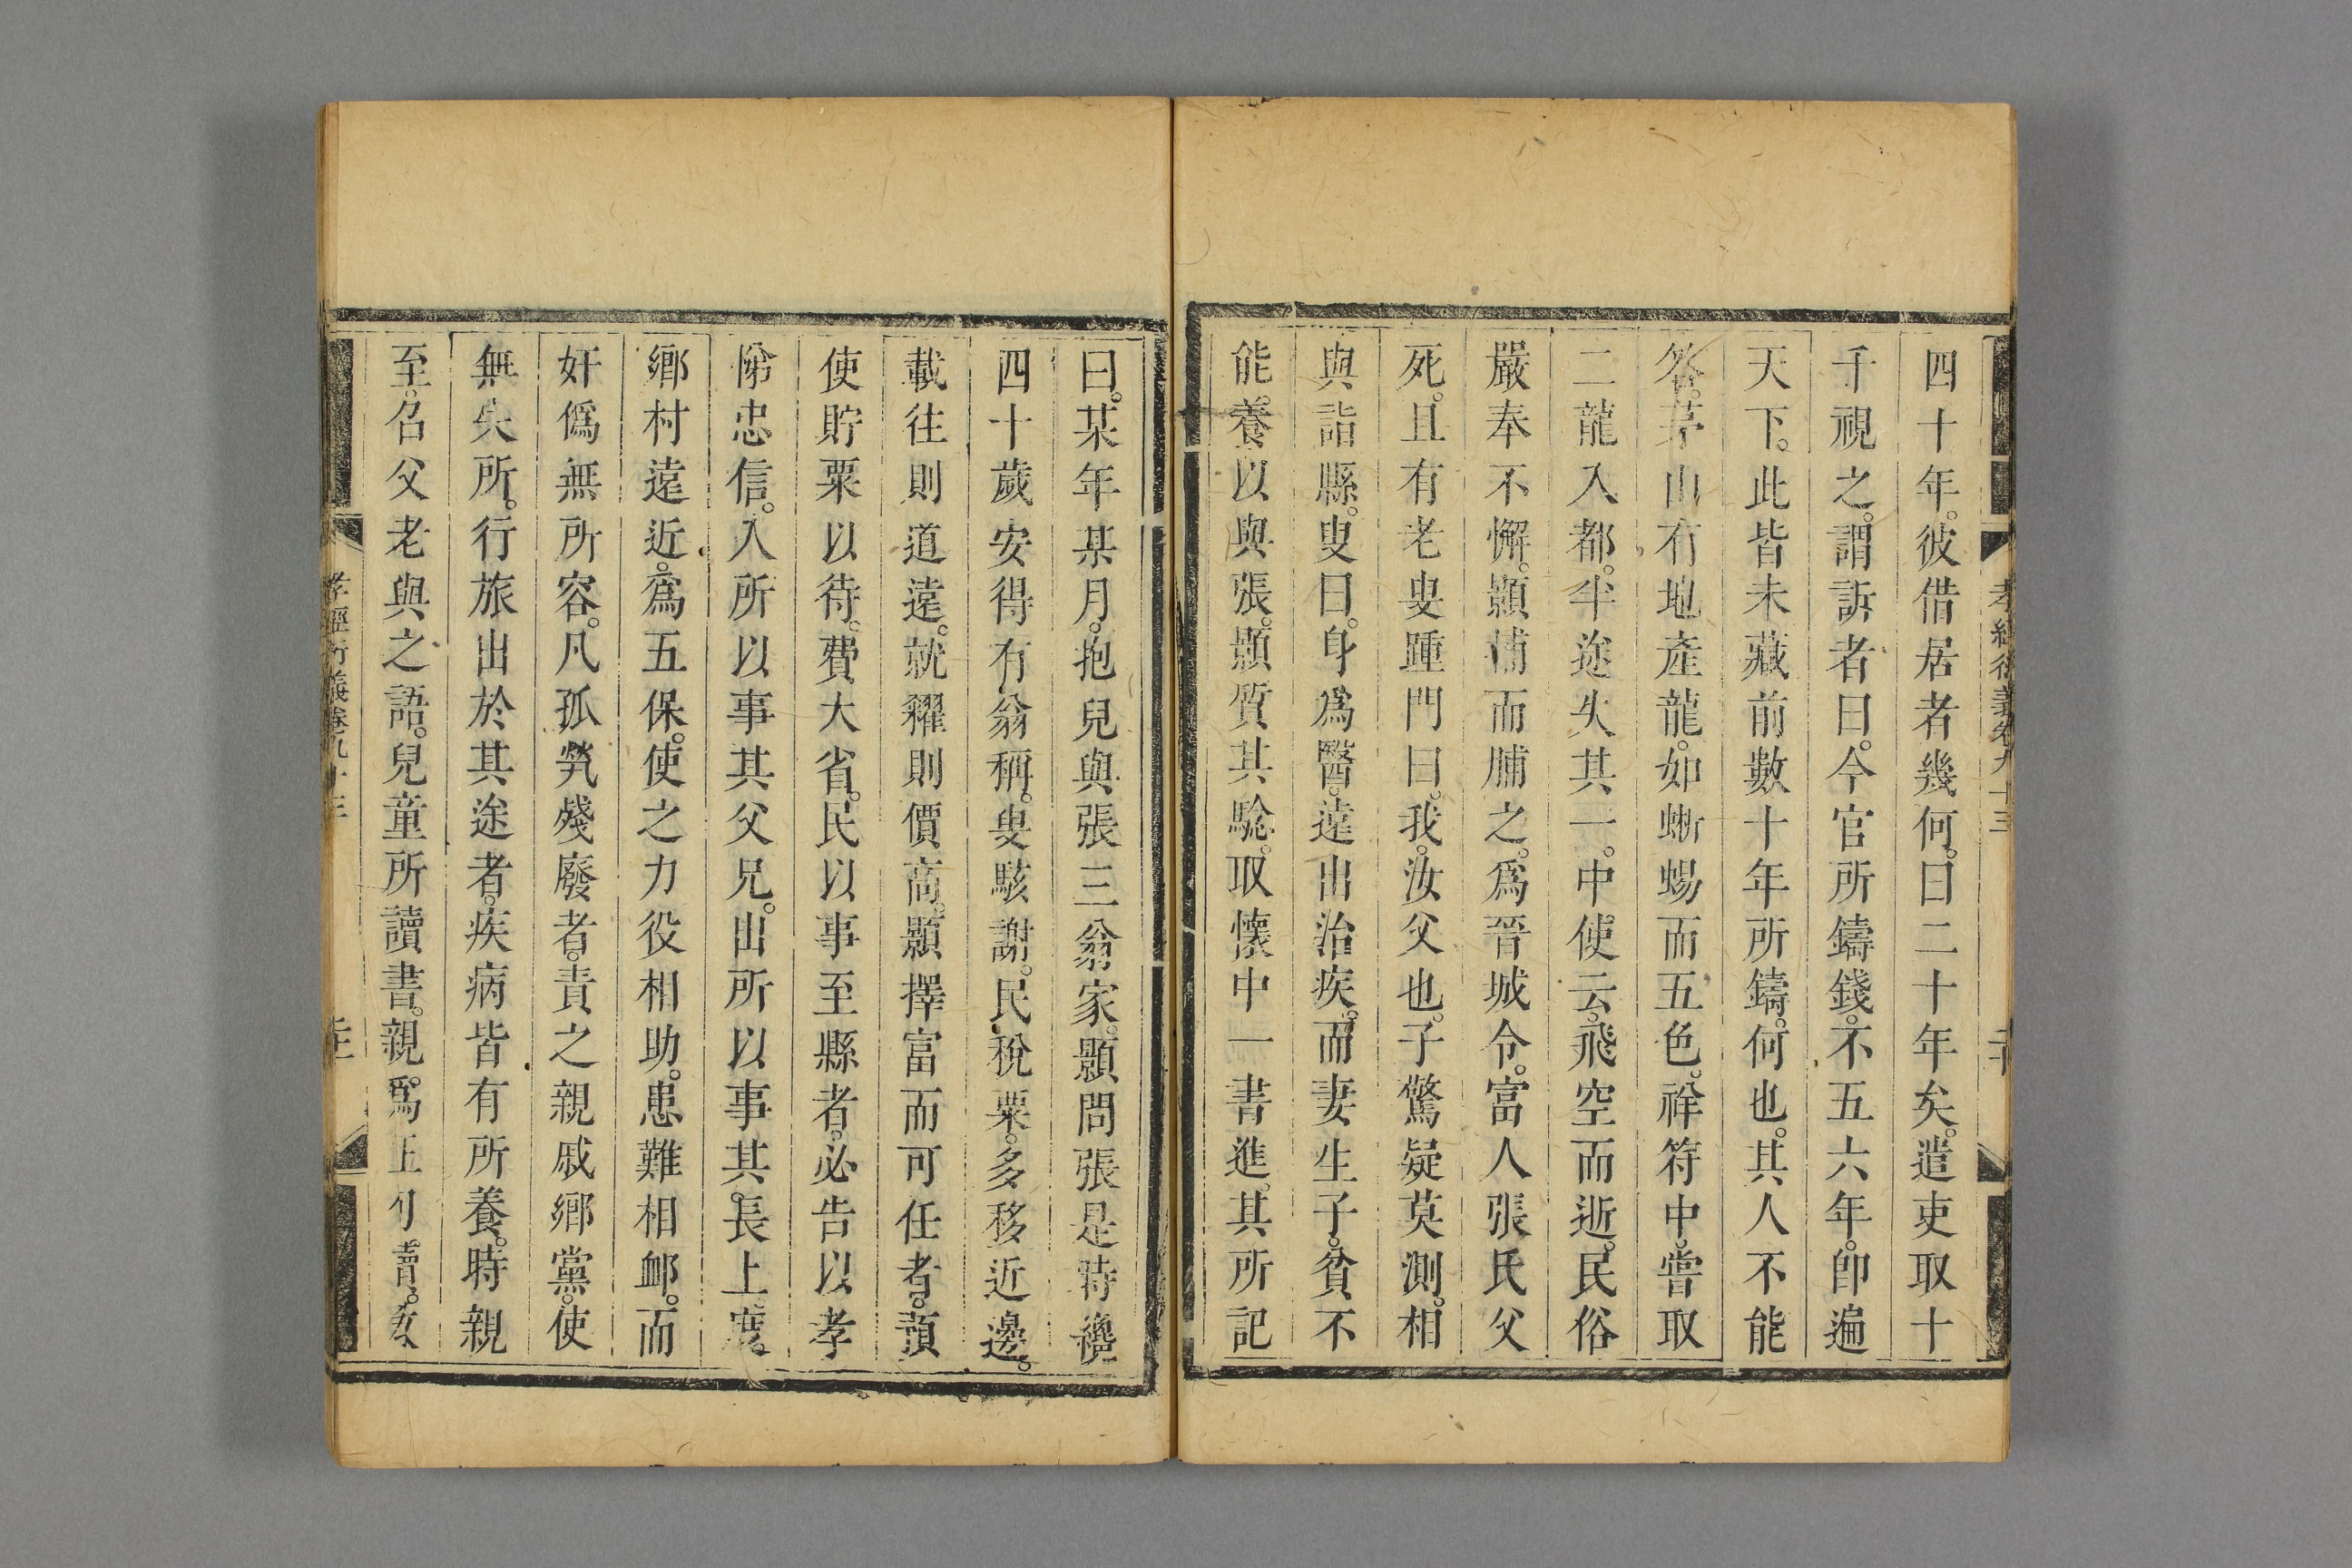 孝經衍義卷九十三
四十年。彼借居者幾何。曰二十年矣。遣吏取十
千視之。謂訴者曰。今官所鑄錢。不五六年。卽遍
天下。此皆未藏前數十年所鑄。何也。其人不能
答。茅山有池產龍。如蜥蜴而五色。祥符中。嘗取
二龍入都。半途失其一。中使云。飛空而逝。民俗
嚴奉不懈。顥捕而脯之。爲晉城令。富人張氏父
死。且有老叟踵門曰。我。汝父也。子驚疑莫測。相
與詣縣。叟曰。身爲醫。遠出治疾。而妻生子。貧不
能養。以與張。顥質其驗。取懷中一書進。其所記
曰。某年某月。抱兒與張三翁家。顥問張是時纔
四十歲安得有翁稱。叟駭謝。民稅粟。多移近邊。
載往則道遠。就糴則價高。顥擇富而可任者。預
使貯粟以待。費大省。民以事至縣者。必告以孝
悌忠信。入所以事其父兄。出所以事其長上。度
鄉村遠近。爲五保。使之力役相助。患難相卹。而
奸僞無所容。凡孤煢殘廢者。責之親戚鄉黨。使
無失所。行旅出於其途者。疾病皆有所養。時親
至。召父老與之語。兒童所讀書。親爲正句讀。教
孝經衍義卷九十三